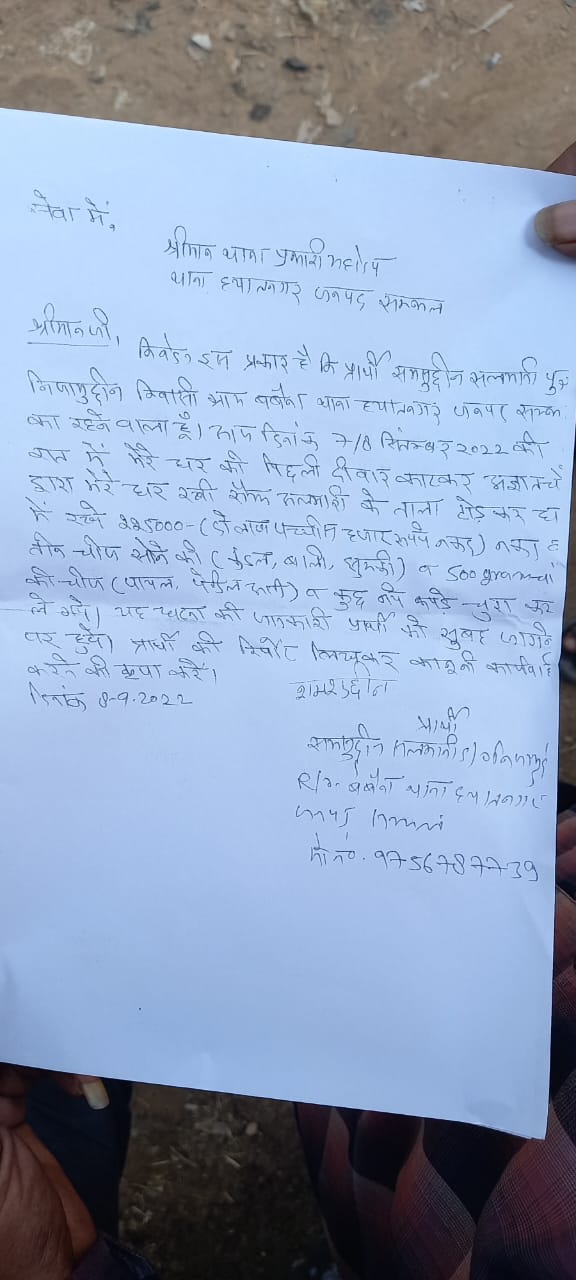 सेवा में,
श्रीमान थाना प्रभारी महोदय
थाना हयातनगर जनपद सम्भल
श्रीमानजी,
निवेदन इस प्रकार है कि प्रार्थी समसुद्दीन सलमानी पुत्र
निजामुद्दीन निवासी ग्राम बबैना थाना हयातनगर जनपद सम्भ
का रहने वाला हूँ। दिनांक 7/8 सितम्बर 2022 की
रात में मेरे घर की पिछली दीवार काटकर अज्ञात चो
द्वारा मेरे घर रखी सेफ अलमारी के ताला तोड़कर
में रखे 225000-(दो लाख पच्चीस हजार रूपये नकद) नकद व
तीन चीज सोने की (कुंडल, बाली, झुमकी) व 500 gram चां
की चीज (पायल, ) व कुछ नये कपड़े चुरा कर
ले गये। यह घटना की जानकारी प्रार्थी को सुबह जागने
पर हुई। प्रार्थी की रिपोर्ट लिखकर कानूनी कार्यवाह
करने की कृपा करें।
दिनांक 8-9-2022
शमशुद्दीन
प्रार्थी
समसुद्दीन सलमानी S/o निजामुद्दी
R/o बबैना थाना हयातनगर
जनपद सम्भल
मो नं. 9756787739